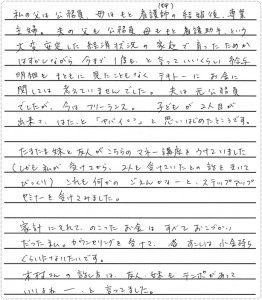 (専門)
私の父は公務員、母はもと看護師の結婚後、専業
主婦。夫の父も公務員 母ももと看護助手、という
大変安定した経済状況の家庭で育ったためか
はずかしながら今まで1度も、と言っていいくらい給与
明細をまともに見たこともなく テキトーにお金に
関しては考えていませんでした。夫は元公務員
でしたが、今はフリーランス。子どもが2人目が
出来て、はたっと「ヤバイ」と思いはじめたところです。
たまたま妹と友人がこちらのマネー講座をうけていました
(しかも私が受けてから、2人も受けていたとの話をきいて
びっくり) これも何かのごえんかなーと、ステップアップ
セミナーを受けてみました。
家計に入れて、のこったお金はすべておこづかい
だった私。カウンセリングを受けて、少しは小金持ち
くらいにはなりたいです。
木村さんの話し方は、友人、妹もテンポがあって
いいよねー、と言ってました。